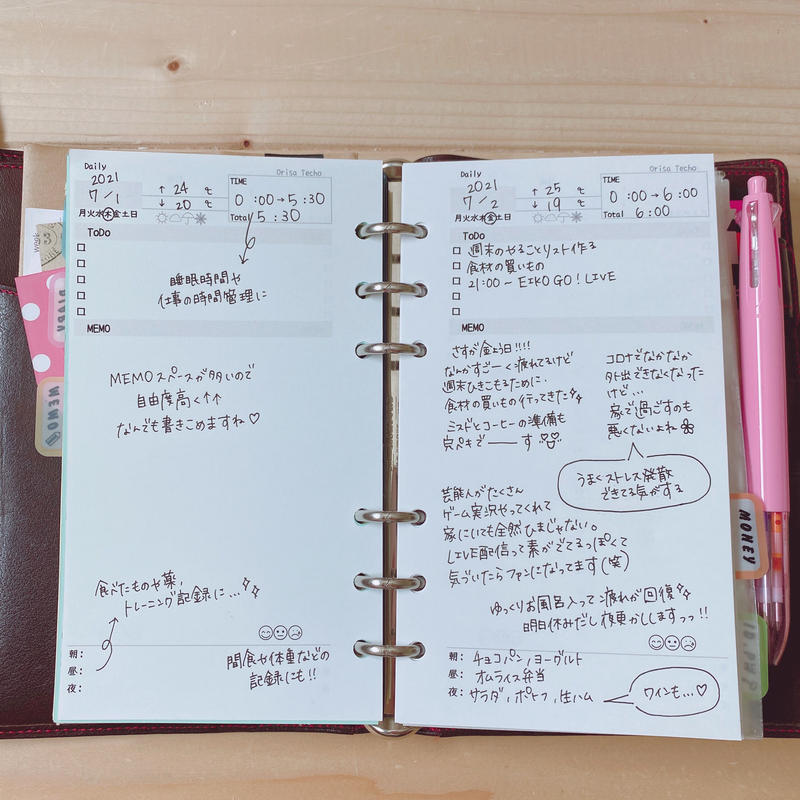 Daily
Orisa Techo
2021
7/1
↑ 24 ℃
↓ 20 ℃
TIME
0:00→5:30
Total 5:30
月火水木金土日
ToDo
睡眠時間や
仕事の時間管理に
MEMO
MEMOスペースが多いので
自由度高く↑↑
なんでも書きこめますね♡
食べたものや薬、
トレーニング記録に...
朝:
昼:
夜:
間食や体重などの
記録にも!!
Daily
Orisa Techo
2021
7/2
↑ 25 ℃
↓ 19 ℃
TIME
0:00→6:00
Total 6:00
月火水木金土日
ToDo
週末のやることリスト作る
食材の買いもの
21:00~ EIKO GO! LIVE
MEMO
さすが金よう日!!!!
なんかすごーく疲れてるけど
週末ひきこもるために、
食材の買いもの行ってきた
ミスドとコーヒーの準備も
穴ペキで――す
コロナでなかなか
外出できなくなった
けど...
家で過ごすのも
悪くないよね
うまくストレス発散
できてる気がする
芸能人がたくさん
ゲーム実況やってくれて
家にいても全然ひまじゃない。
LIVE配信って素がでてるっぽくて
気づいたらファンになってます(笑)
ゆっくりお風呂入って疲れが回復
明日休みだし夜更かししますっっ!!
朝: チョコパン, ヨーグルト
昼: オムライス弁当
夜: サラダ, ポトフ, 生ハム
ワインも...♡
DIARY
MEMO
MONEY